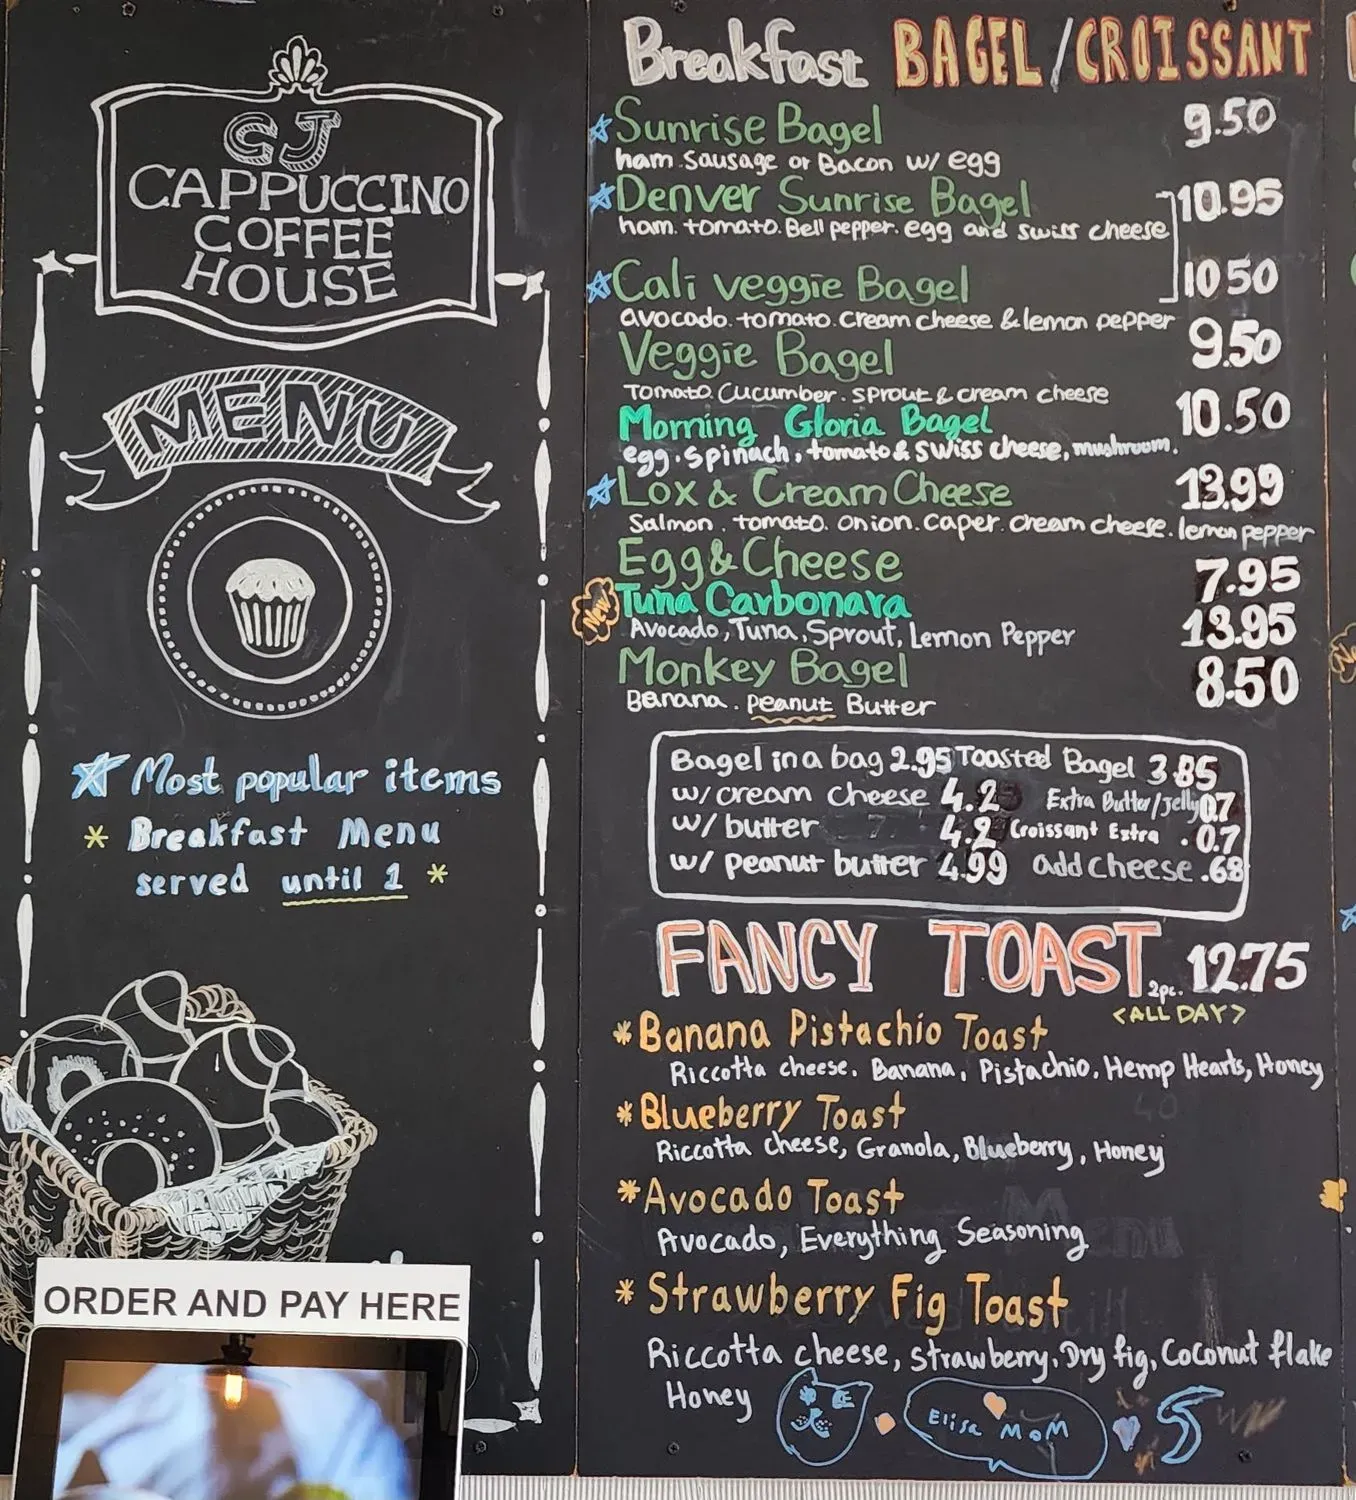 CJ
CAPPUCCINO
COFFEE
HOUSE
MENU
Most popular items
* Breakfast Menu
served until 1 *
ORDER AND PAY HERE
Breakfast BAGEL/CROISSANT
Sunrise Bagel 9.50
ham. sausage or Bacon w/ egg
Denver Sunrise Bagel 10.95
ham. tomato. Bell pepper. egg and swiss cheese
Cali veggie Bagel 10 50
avocado. tomato. cream cheese & lemon pepper
Veggie Bagel 9.50
Tomato. Cucumber. sprout & cream cheese
Morning Gloria Bagel 10.50
egg. spinach, tomato & swiss cheese, mushroom.
Lox & Cream Cheese 13.99
Salmon. tomato. onion. caper. cream cheese. lemon pepper
Egg & Cheese 7.95
New! Tuna Carbonara 13.95
Avocado, Tuna, Sprout, Lemon Pepper
Monkey Bagel 8.50
Banana. peanut Butter
Bagel in a bag 2.95 Toasted Bagel 3.85
w/ cream cheese 4.25 Extra Butter/Jelly 0.7
w/ butter 4.2 Croissant Extra .0.7
w/ peanut butter 4.99 add cheese .68
FANCY TOAST 2pc. 12.75
<ALL DAY>
* Banana Pistachio Toast
Riccotta cheese. Banana, Pistachio, Hemp Hearts, Honey
* Blueberry Toast
Riccotta cheese, Granola, Blueberry, Honey
* Avocado Toast
Avocado, Everything Seasoning
* Strawberry Fig Toast
Riccotta cheese, strawberry, Dry fig, Coconut flake
Honey
Elisa MOM